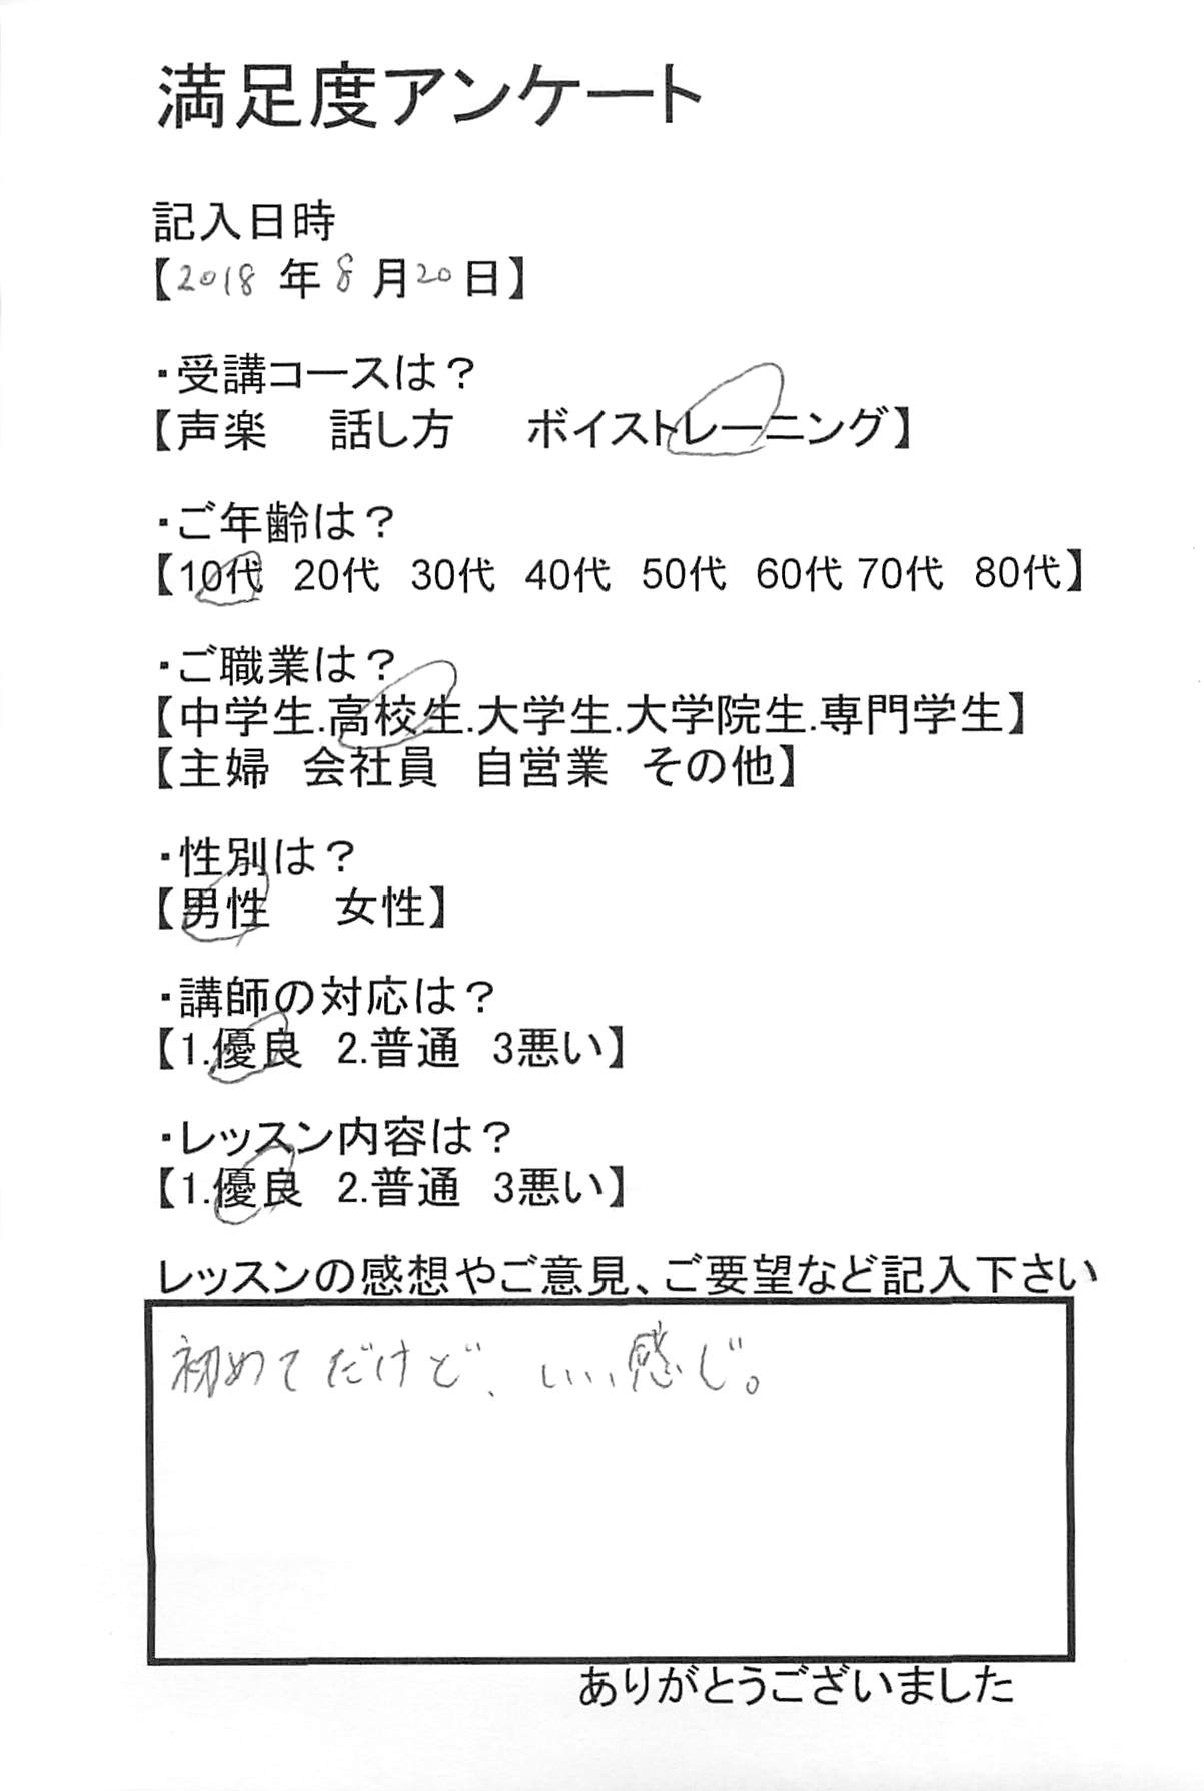 満足度アンケート
記入日時
【2018年8月20日】
・受講コースは？
【声楽　話し方　ボイストレーニング】
・ご年齢は？
【10代 20代 30代 40代 50代 60代 70代 80代】
・ご職業は？
【中学生.高校生.大学生.大学院生.専門学生】
【主婦　会社員　自営業　その他】
・性別は？
【男性　女性】
・講師の対応は？
【1.優良　2.普通　3悪い】
・レッスン内容は？
【1.優良　2.普通　3悪い】
レッスンの感想やご意見、ご要望など記入下さい
初めてだけど、いい感じ。
ありがとうございました